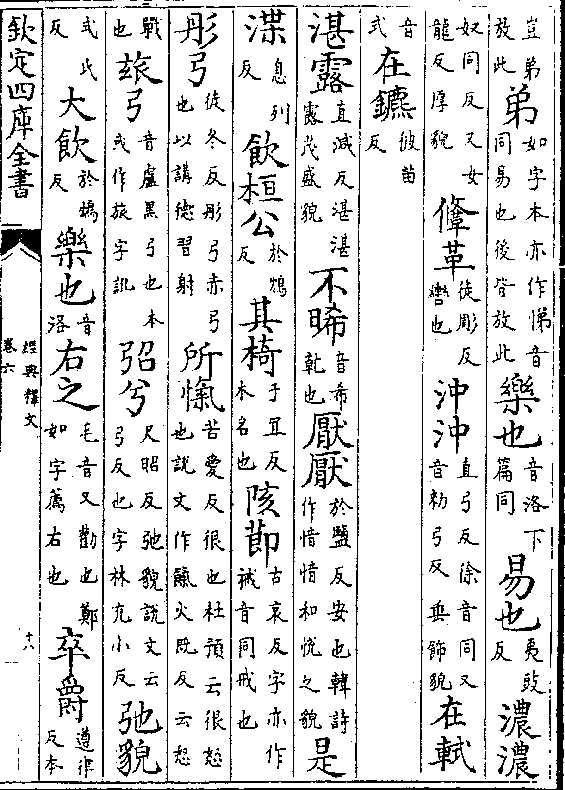 豈弟放此弟如字本亦作悌音同易也後皆放此樂也音洛下篇同易也夷豉反濃濃
奴同反又女龍反厚貌鞗革徒彫反轡也沖沖直弓反徐音同又音勑弓反垂飾貌在軾
音式在鑣彼苗反
湛露直減反湛湛露茂盛貌不晞音希乾也厭厭於鹽反安也韓詩作愔愔和悅之貌是
渫息列反飲桓公於鴆反其椅于宜反木名也陔節古哀反字亦作祴音同戒也
彤弓徒冬反彤弓赤弓也以講德習射所愾苦愛反很也杜預云很怒也說文作鎎火旣反云怒
戰也玈弓音盧黑弓也本或作旅字訛弨兮尺昭反弛貌說文云弓反也字林充小反弛貌
式氏反大飲於鴆反樂也音洛右之毛音又勸也鄭如字薦右也卒爵遵律反本
欽定四庫全書
經典釋文
卷六
十八